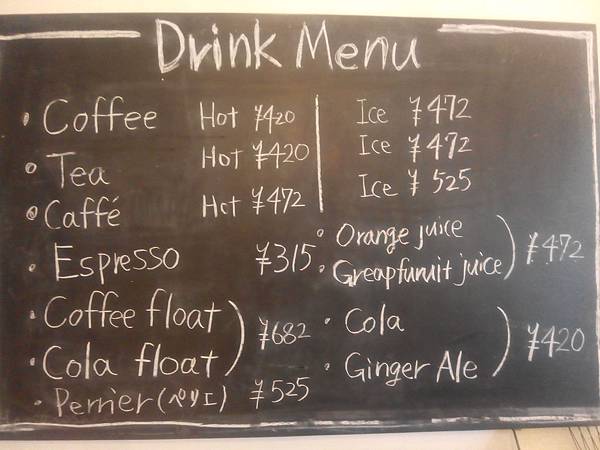 Drink Menu
• Coffee Hot ¥420 Ice ¥472
• Tea Hot ¥420 Ice ¥472
• Caffé Hot ¥472 Ice ¥525
• Espresso ¥315
• Orange juice
• Greapfuruit juice ¥472
• Coffee float
• Cola float ¥682
• Cola
• Ginger Ale ¥420
• Perrier (ペリエ) ¥525